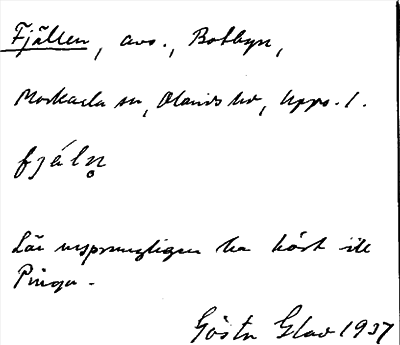 Fjällen, avs., Bolbyn,
Morkarla sn, Olands hd, Upps. l.
fjäln̥
Lär ursprungligen ha hört till
Pinga.
Gösta Glav 1937